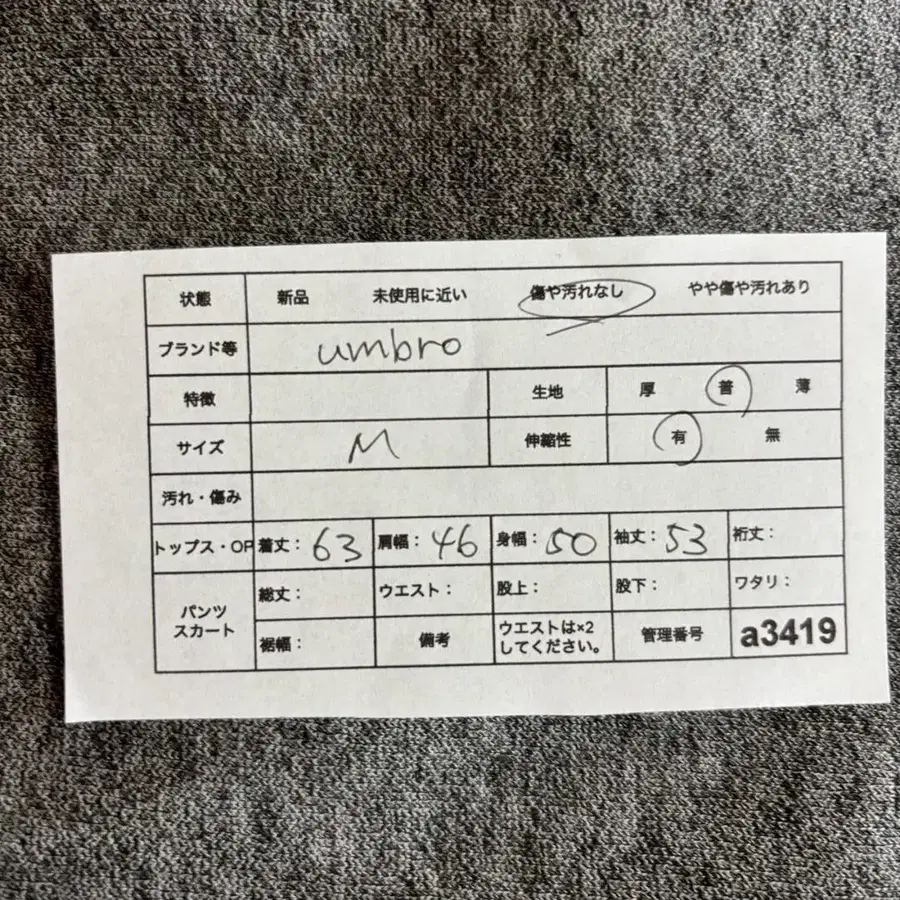 状態 新品 未使用に近い 傷や汚れなし やや傷や汚れあり
ブランド等 umbro
特徴 生地 厚 普 薄
サイズ M 伸縮性 有 無
汚れ・傷み
トップス・OP 着丈：63 肩幅：46 身幅：50 袖丈：53 裄丈：
パンツ
スカート
総丈： ウエスト： 股上： 股下： ワタリ：
裾幅： 備考 ウエストは×2
してください。
管理番号 a3419